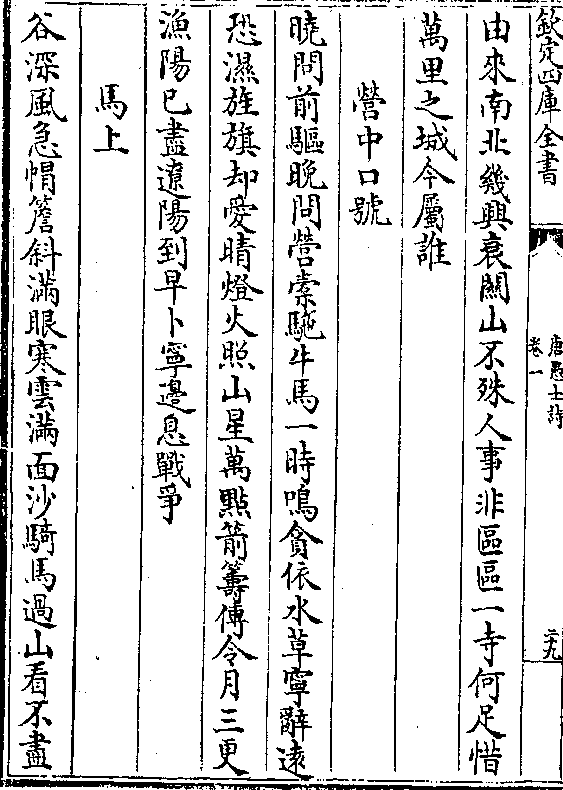 欽定四庫全書
唐愚士詩
卷一
二十九
由來南北幾興衰關山不殊人事非區區一寺何足惜
萬里之城今屬誰
營中口號
曉問前驅晚問營橐駞牛馬一時鳴貪依水草寧辭遠
恐濕旌旗却愛晴燈火照山星萬點箭籌傳令月三更
漁陽已盡遼陽到早卜寧邉息戰爭
馬上
谷深風急帽簷斜滿眼寒雲滿面沙騎馬過山看不盡